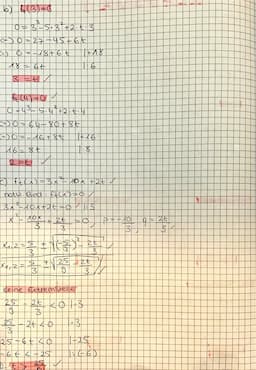 b) f_t(3)=0
0=3³-5·3²+2·t·3
(=) 0=27-45+6t
(=) 0=-18+6t |+18
18=6t |:6
3=t ✓
f_t(4)=0
0=4³-5·4²+2·t·4
(=) 0=64-80+8t
(=) 0=-16+8t |+16
16=8t |:8
2=t ✓
c) f_t'(x)=3x²-10x+2t ✓
notw. Bed. f_t'(x)=0 ✓
3x²-10x+2t=0 ✓ |:3
x²-10x/3+2t/3=0, p=-10/3, q=2t/3 ✓
x₁,₂=5/3±√((-5/3)²-2t/3)
x₁,₂=5/3±√(25/9-2t/3) ✓
keine Extremstelle
25/9-2t/3<0 |·3
25/3-2t<0 |·3
25-6t<0 |-25
-6t<-25 |:(-6)
t>25/6